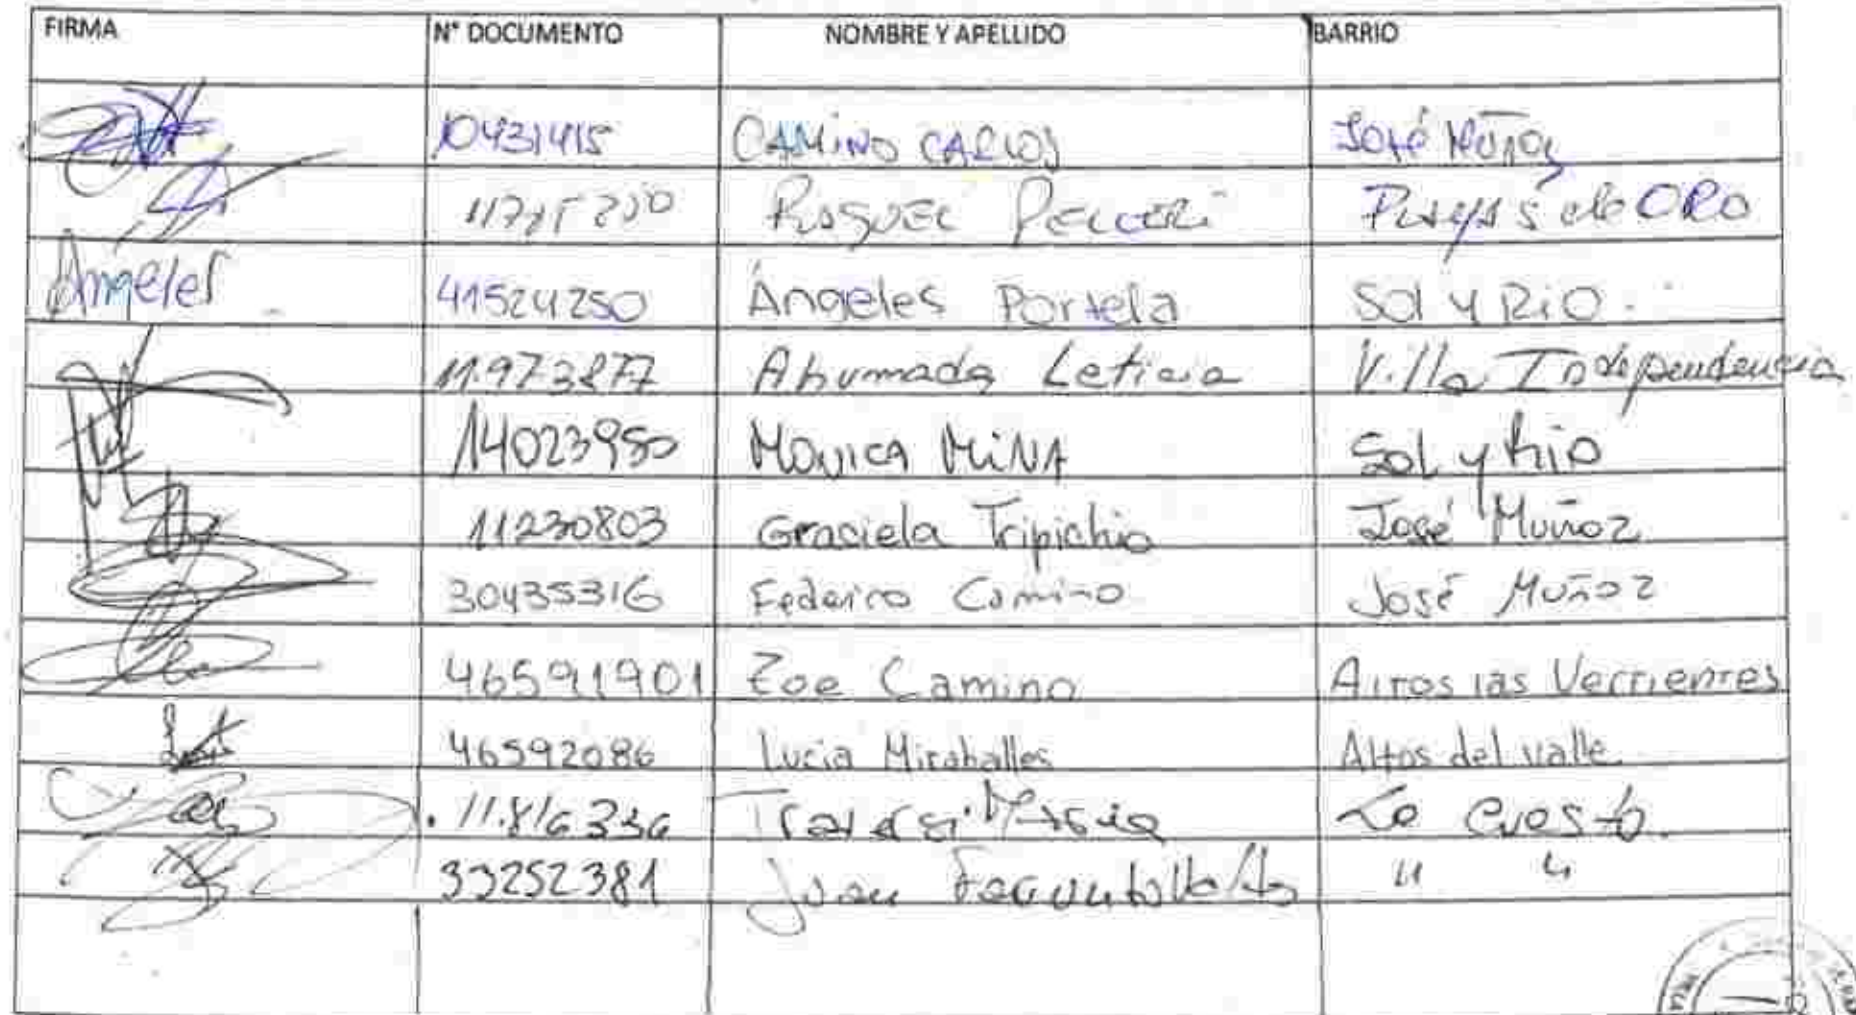 FIRMA N° DOCUMENTO NOMBRE Y APELLIDO BARRIO
10431415 CAMINO CARLOS José Muñoz
RAQUEL PELLERI Playas de ORO
Ángeles 41524250 Ángeles Portela Sol y Rio.
11.973877 Ahumada Leticia Villa Independencia
14023950 MONICA MINA Sol y Rio
11230803 Graciela Tripichio José Muñoz
30435316 Federico Camino José Muñoz
46591901 Zoe Camino Altos las Vertientes
46592086 Lucia Miraballes Altos del valle
11.816336 María La Cuesta.
33252381 Juan " "